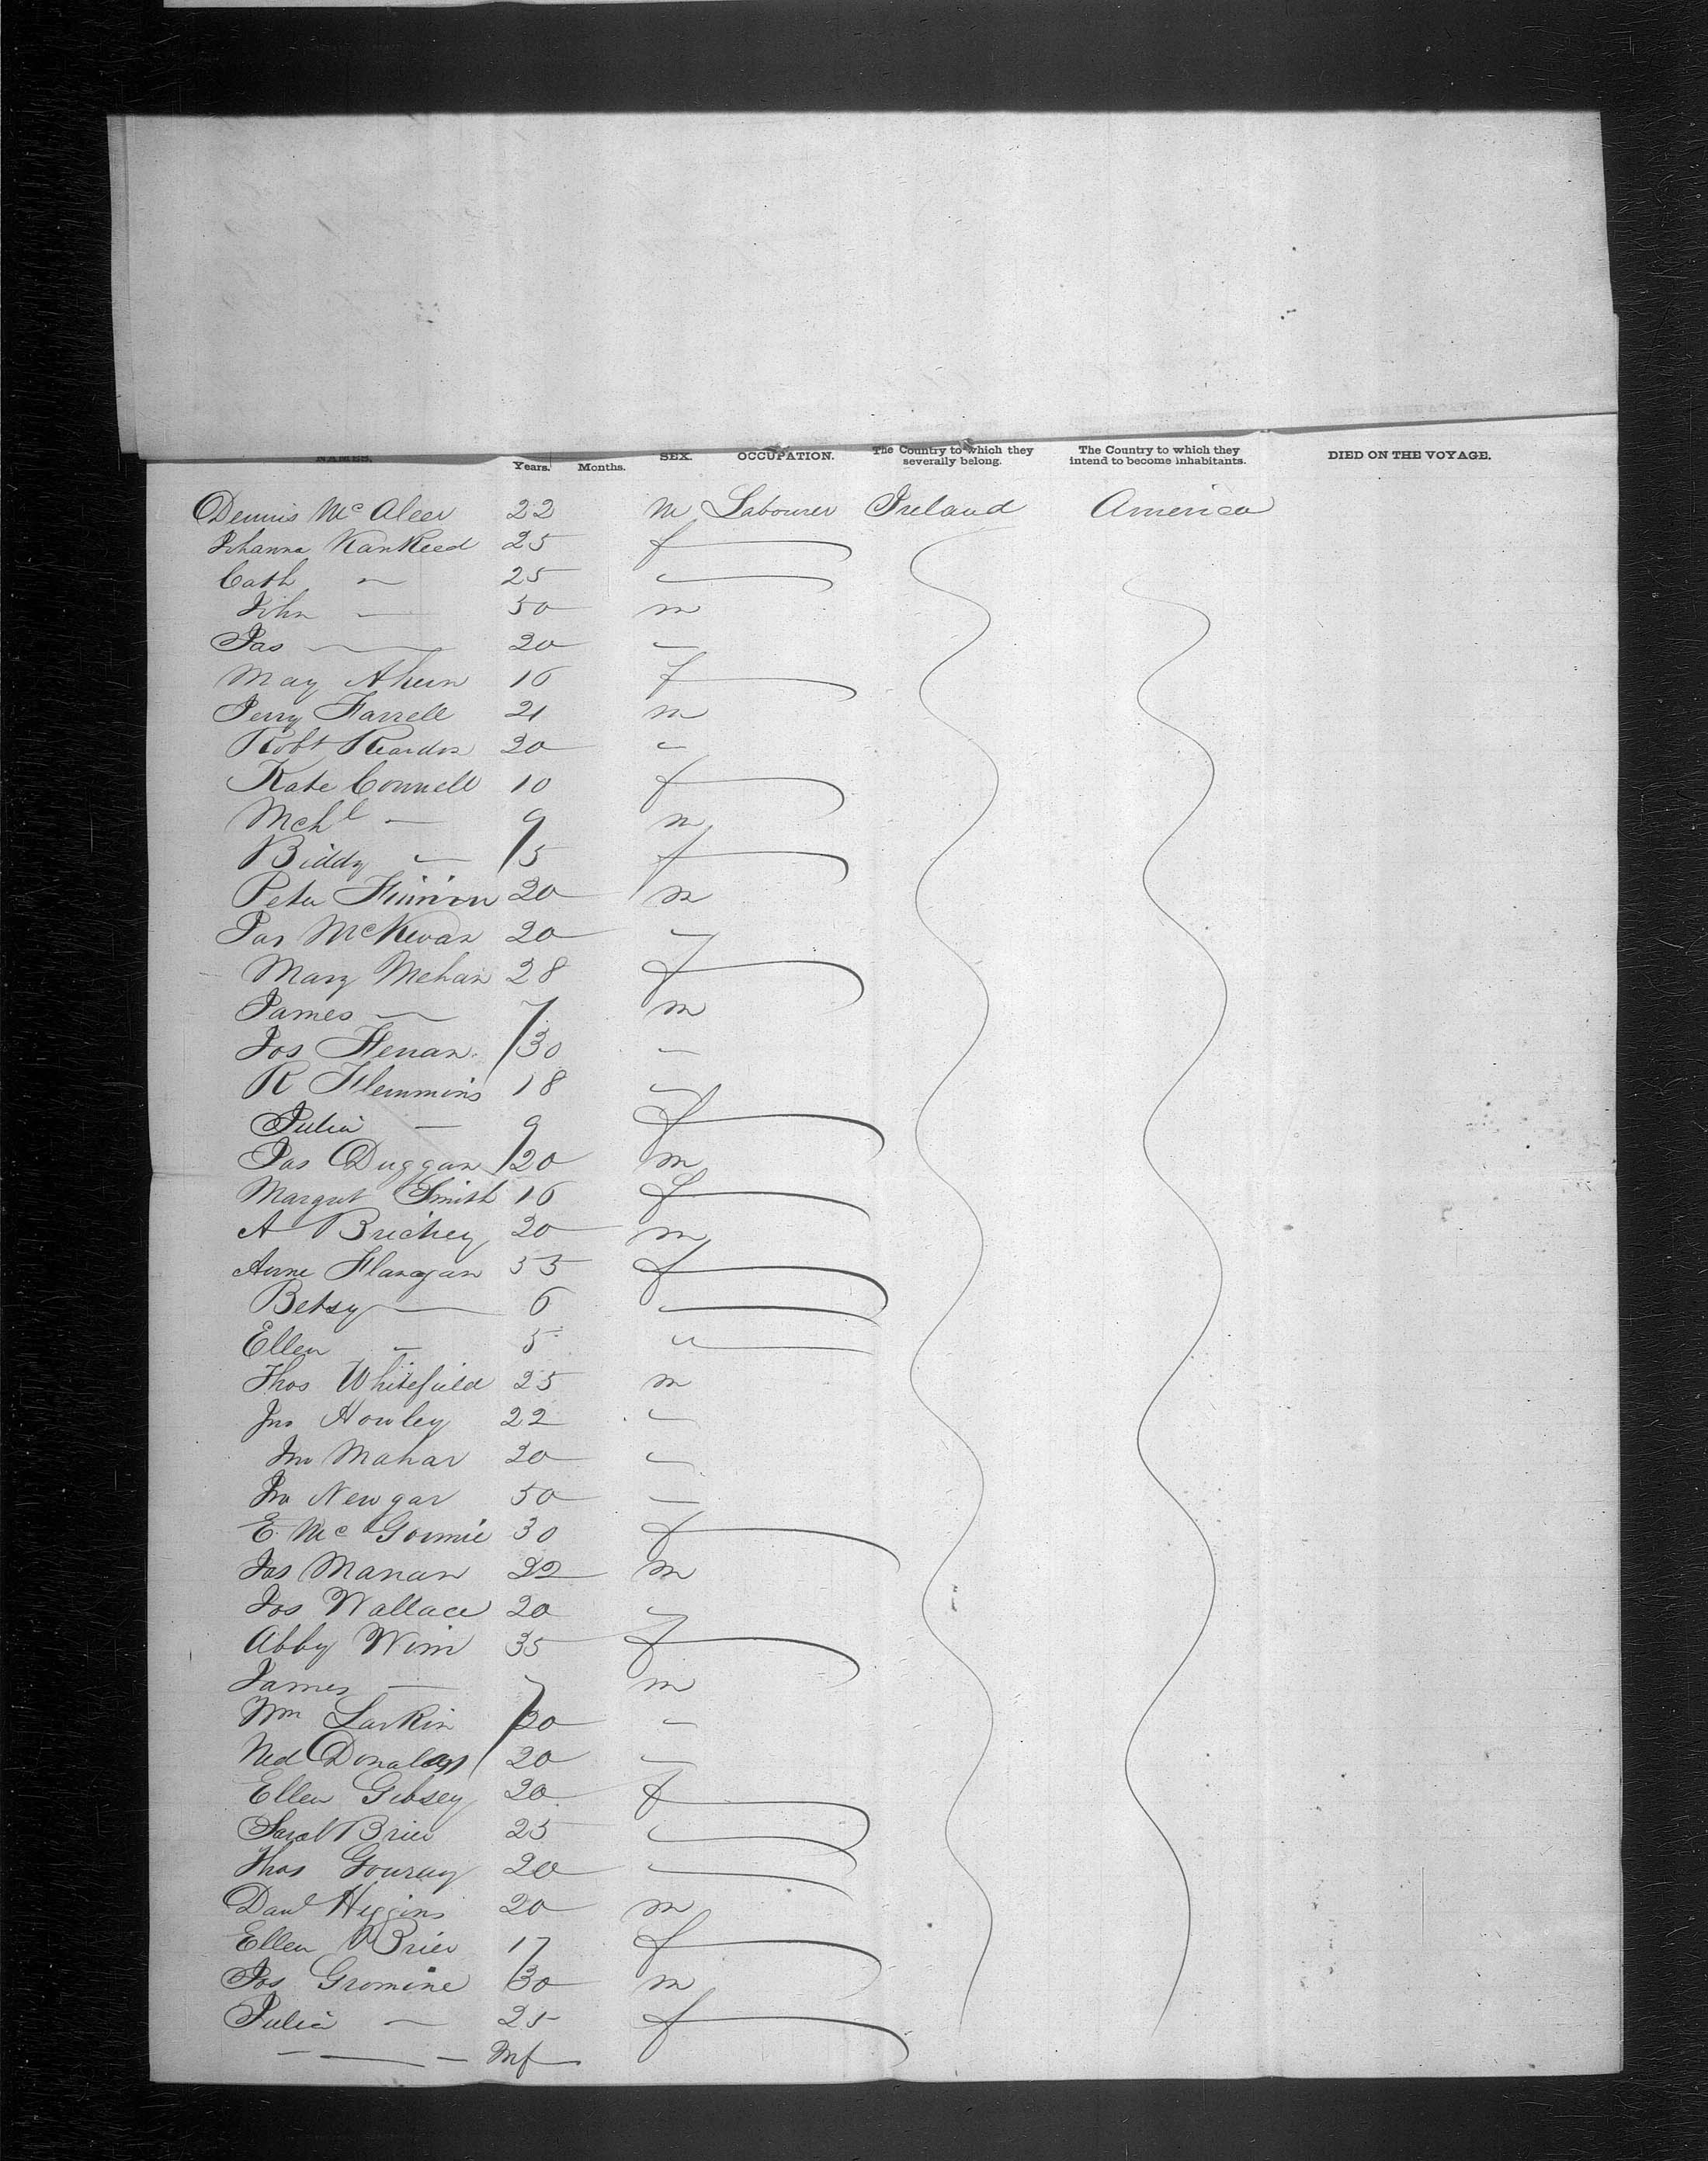 NAMES. Years. Months. SEX. OCCUPATION. The Country to which they severally belong. The Country to which they intend to become inhabitants. DIED ON THE VOYAGE.
Dennis McAleer 22 m Labourer Ireland America
Johanna KanKeed 25 f
Cath — 25 —
John — 50 m
Jas — 20 —
May Ahern 16 f
Jerry Farrell 21 m
Robt Reardon 20 —
Kate Connell 10 f
Mchl — 9 m
Biddy — 5 f
Peter 20 m
Jas McKevan 20 —
Mary Mehan 28 f
James — 7 m
Jos Henan 30 —
R Flemmins 18 —
Julia — 9 f
Jas Duggan 20 m
Margret Smith 16 f
A Brichey 20 m
Anne Flanagan 35 f
Betsy — 6 —
Ellen — 5 "
Thos Whitefield 25 m
Jno Howley 22 —
Jno Mahar 20 —
Jno Newgar 50 —
E. Mc Gormie 30 f
Jas Manan 22 m
Jos Wallace 20 —
Abby Winn 35 f
James — 7 m
Wm Larkin 30 —
Ned 20 —
Ellen Gibsey 20 f
Brien 25 —
Thos Gouray 20 —
Danl Higgins 20 m
Ellen OBrien 17 f
Jos Gromine 30 m
Julia — 25 f
— — — Inf